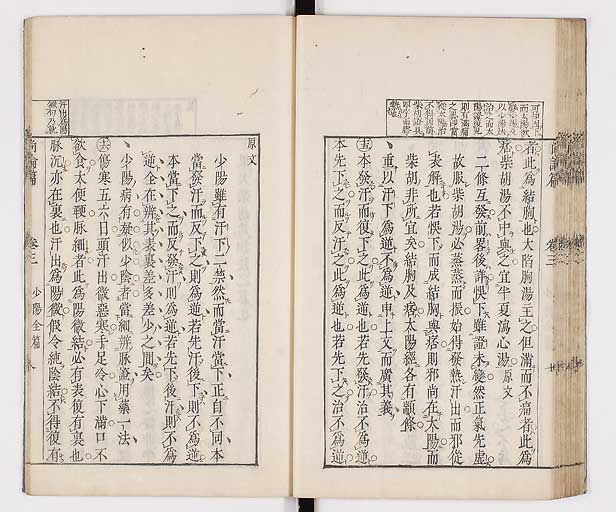 者此爲結胸也大陷胸湯主之但滿而不痛者此爲
痞柴胡湯不中與之宜半夏瀉心湯 原文
二條互發前畧後詳悞下雖證未變然正氣先虛
故服柴胡湯必蒸蒸而振始得發熱汗出而邪從
表解也若悞下而成結胸與痞則邪尚在太陽而
柴胡非所宜矣結胸及痞太陽經各有顓條
重以汗下爲逆不爲逆申上文而廣其義
本發汗而復下之此爲逆也若先發汗治不爲逆
本先下之而反汗之此爲逆也若先下之治不爲逆
原文
少陽雖有汗下二禁然而當汗當下正自不同本
當發汗而反下之則爲逆若先汗後下則不爲逆
本當下之而反發汗則爲逆若先下後汗則不爲
逆全在辨其表裏差多差少之間矣
少陽病有裝似少陰者當細辨脉證用藥一法
傷寒五六日頭汗出微惡寒手足冷心下滿口不
欲食大便鞕脉細者此爲陽微結必有表復有裏也
脉沉亦在裏也汗出爲陽微假令純陰結不得復有
尚論篇 卷三 少陽全篇